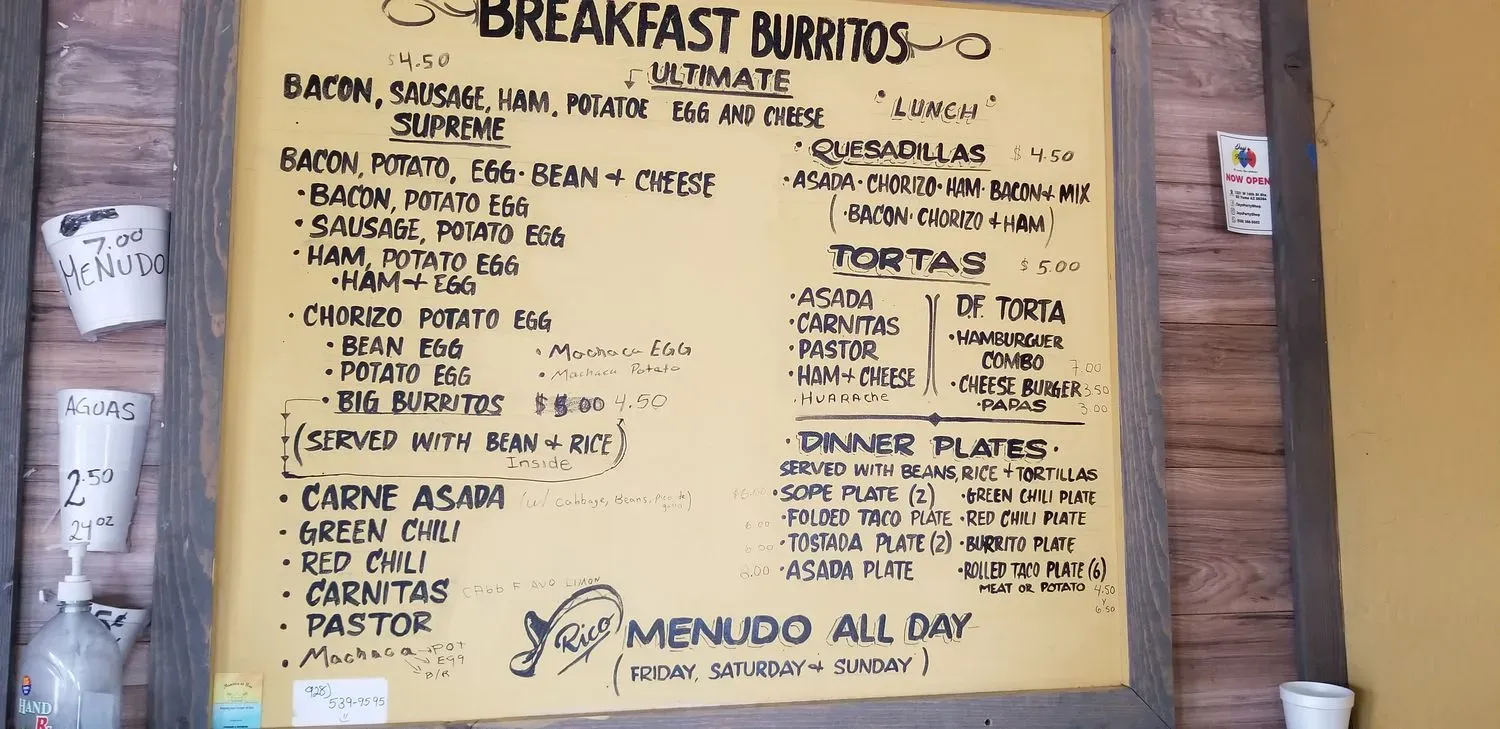 BREAKFAST BURRITOS
$4.50
ULTIMATE
BACON, SAUSAGE, HAM, POTATOE EGG AND CHEESE
SUPREME
BACON, POTATO, EGG · BEAN + CHEESE
· BACON, POTATO EGG
· SAUSAGE, POTATO EGG
· HAM, POTATO EGG
· HAM + EGG
· CHORIZO POTATO EGG
· BEAN EGG
· POTATO EGG
· Machaca EGG
· Machaca Potato
· BIG BURRITOS 4.50
(SERVED WITH BEAN + RICE)
Inside
· CARNE ASADA (w/ Cabbage, Beans, Pico de gallo)
· GREEN CHILI
· RED CHILI
· CARNITAS
· PASTOR
· Machaca → POT
EGG
B/R
928)
539-9595
"LUNCH"
· QUESADILLAS $4.50
· ASADA · CHORIZO · HAM · BACON + MIX
(· BACON · CHORIZO + HAM)
TORTAS $5.00
· ASADA
· CARNITAS
· PASTOR
· HAM + CHEESE
. HUARAChe
D.F. TORTA
· HAMBURGUER
COMBO 7.00
· CHEESE BURGER 3.50
· PAPAS 3.00
· DINNER PLATES ·
SERVED WITH BEANS, RICE + TORTILLAS
· SOPE PLATE (2)
6.00 · FOLDED TACO PLATE
· TOSTADA PLATE (2)
· ASADA PLATE
· GREEN CHILI PLATE
· RED CHILI PLATE
· BURRITO PLATE
· ROLLED TACO PLATE (6)
MEAT OR POTATO 4.50
y
6.50
Rico MENUDO ALL DAY
(FRIDAY, SATURDAY + SUNDAY)
7.00
MENUDO
AGUAS
2.50
24 OZ
HAND
NOW OPEN